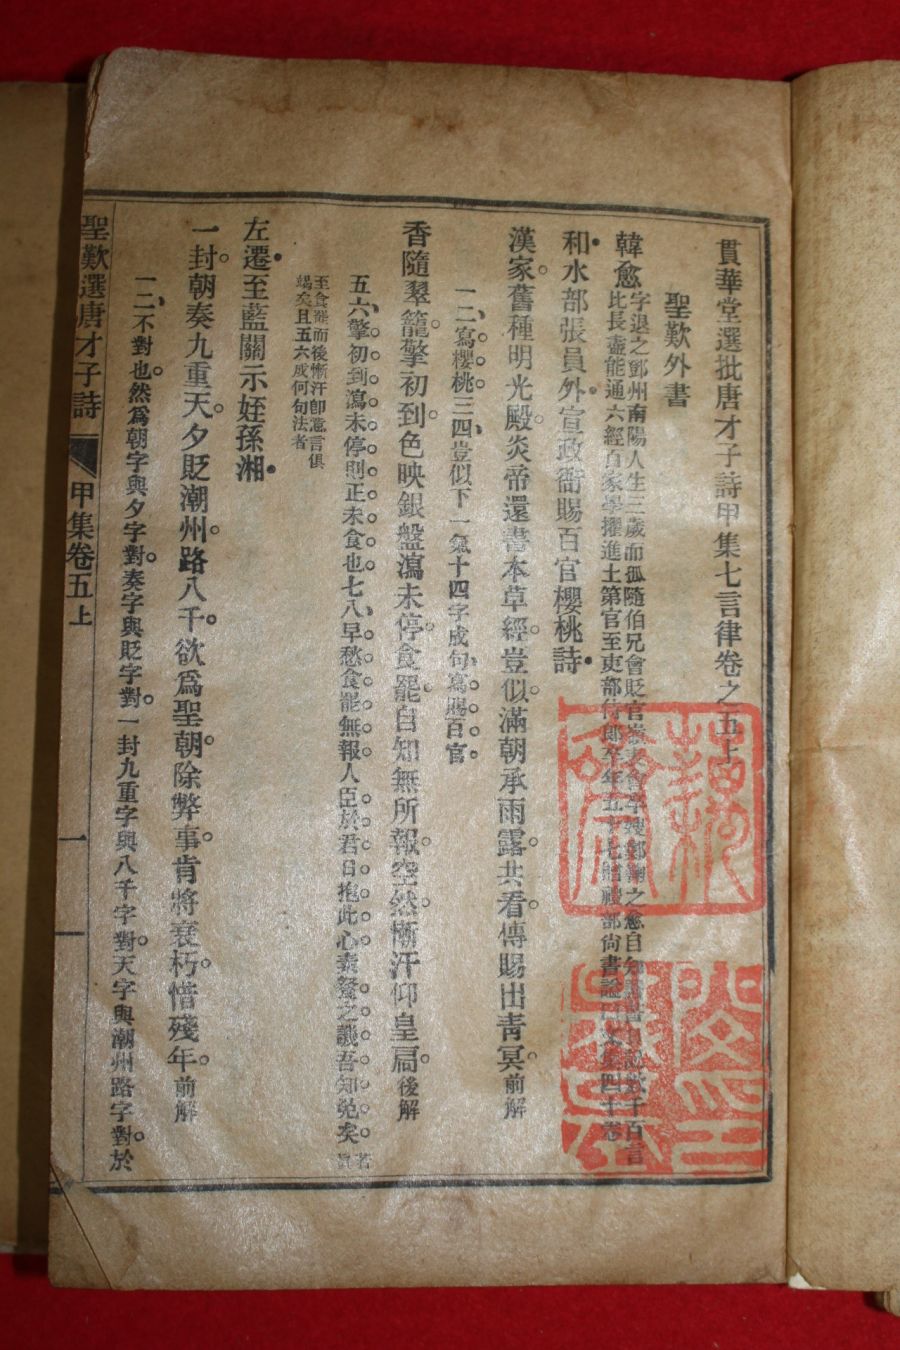 貫華堂選批唐才子詩甲集七言律卷之五上
聖歎外書
韓愈 字退之鄧州南陽人生三歲而孤隨伯兄會貶官嶺表會卒嫂鄭鞠之愈自知讀書日記數千百言
比長盡能通六經百家學擢進士第官至吏部侍郎卒年五十七贈禮部尚書諡曰文集四十卷
和水部張員外宣政衙賜百官櫻桃詩
漢家舊種明光殿炎帝還書本草經豈似滿朝承雨露共看傳賜出青冥前解
一二寫櫻桃三四豈似下一氣十四字成句寫賜百官
香隨翠籠擎初到色映銀盤瀉未停食罷自知無所報空然慚汗仰皇扃後解
五六擎初到瀉未停則正未食也七八早愁食罷無報人臣於君日抱此心素餐之譏吾知免矣若謂
至食罷而後慚汗卽蕙言俱
竭矣且五六成何句法者
左遷至藍關示姪孫湘
一封朝奏九重天夕貶潮州路八千欲爲聖朝除弊事肯將衰朽惜殘年前解
一二不對也然爲朝字與夕字對奏字與貶字對一封九重字與八千字對天字與潮州路字對於
聖歎選唐才子詩 甲集卷五上 一